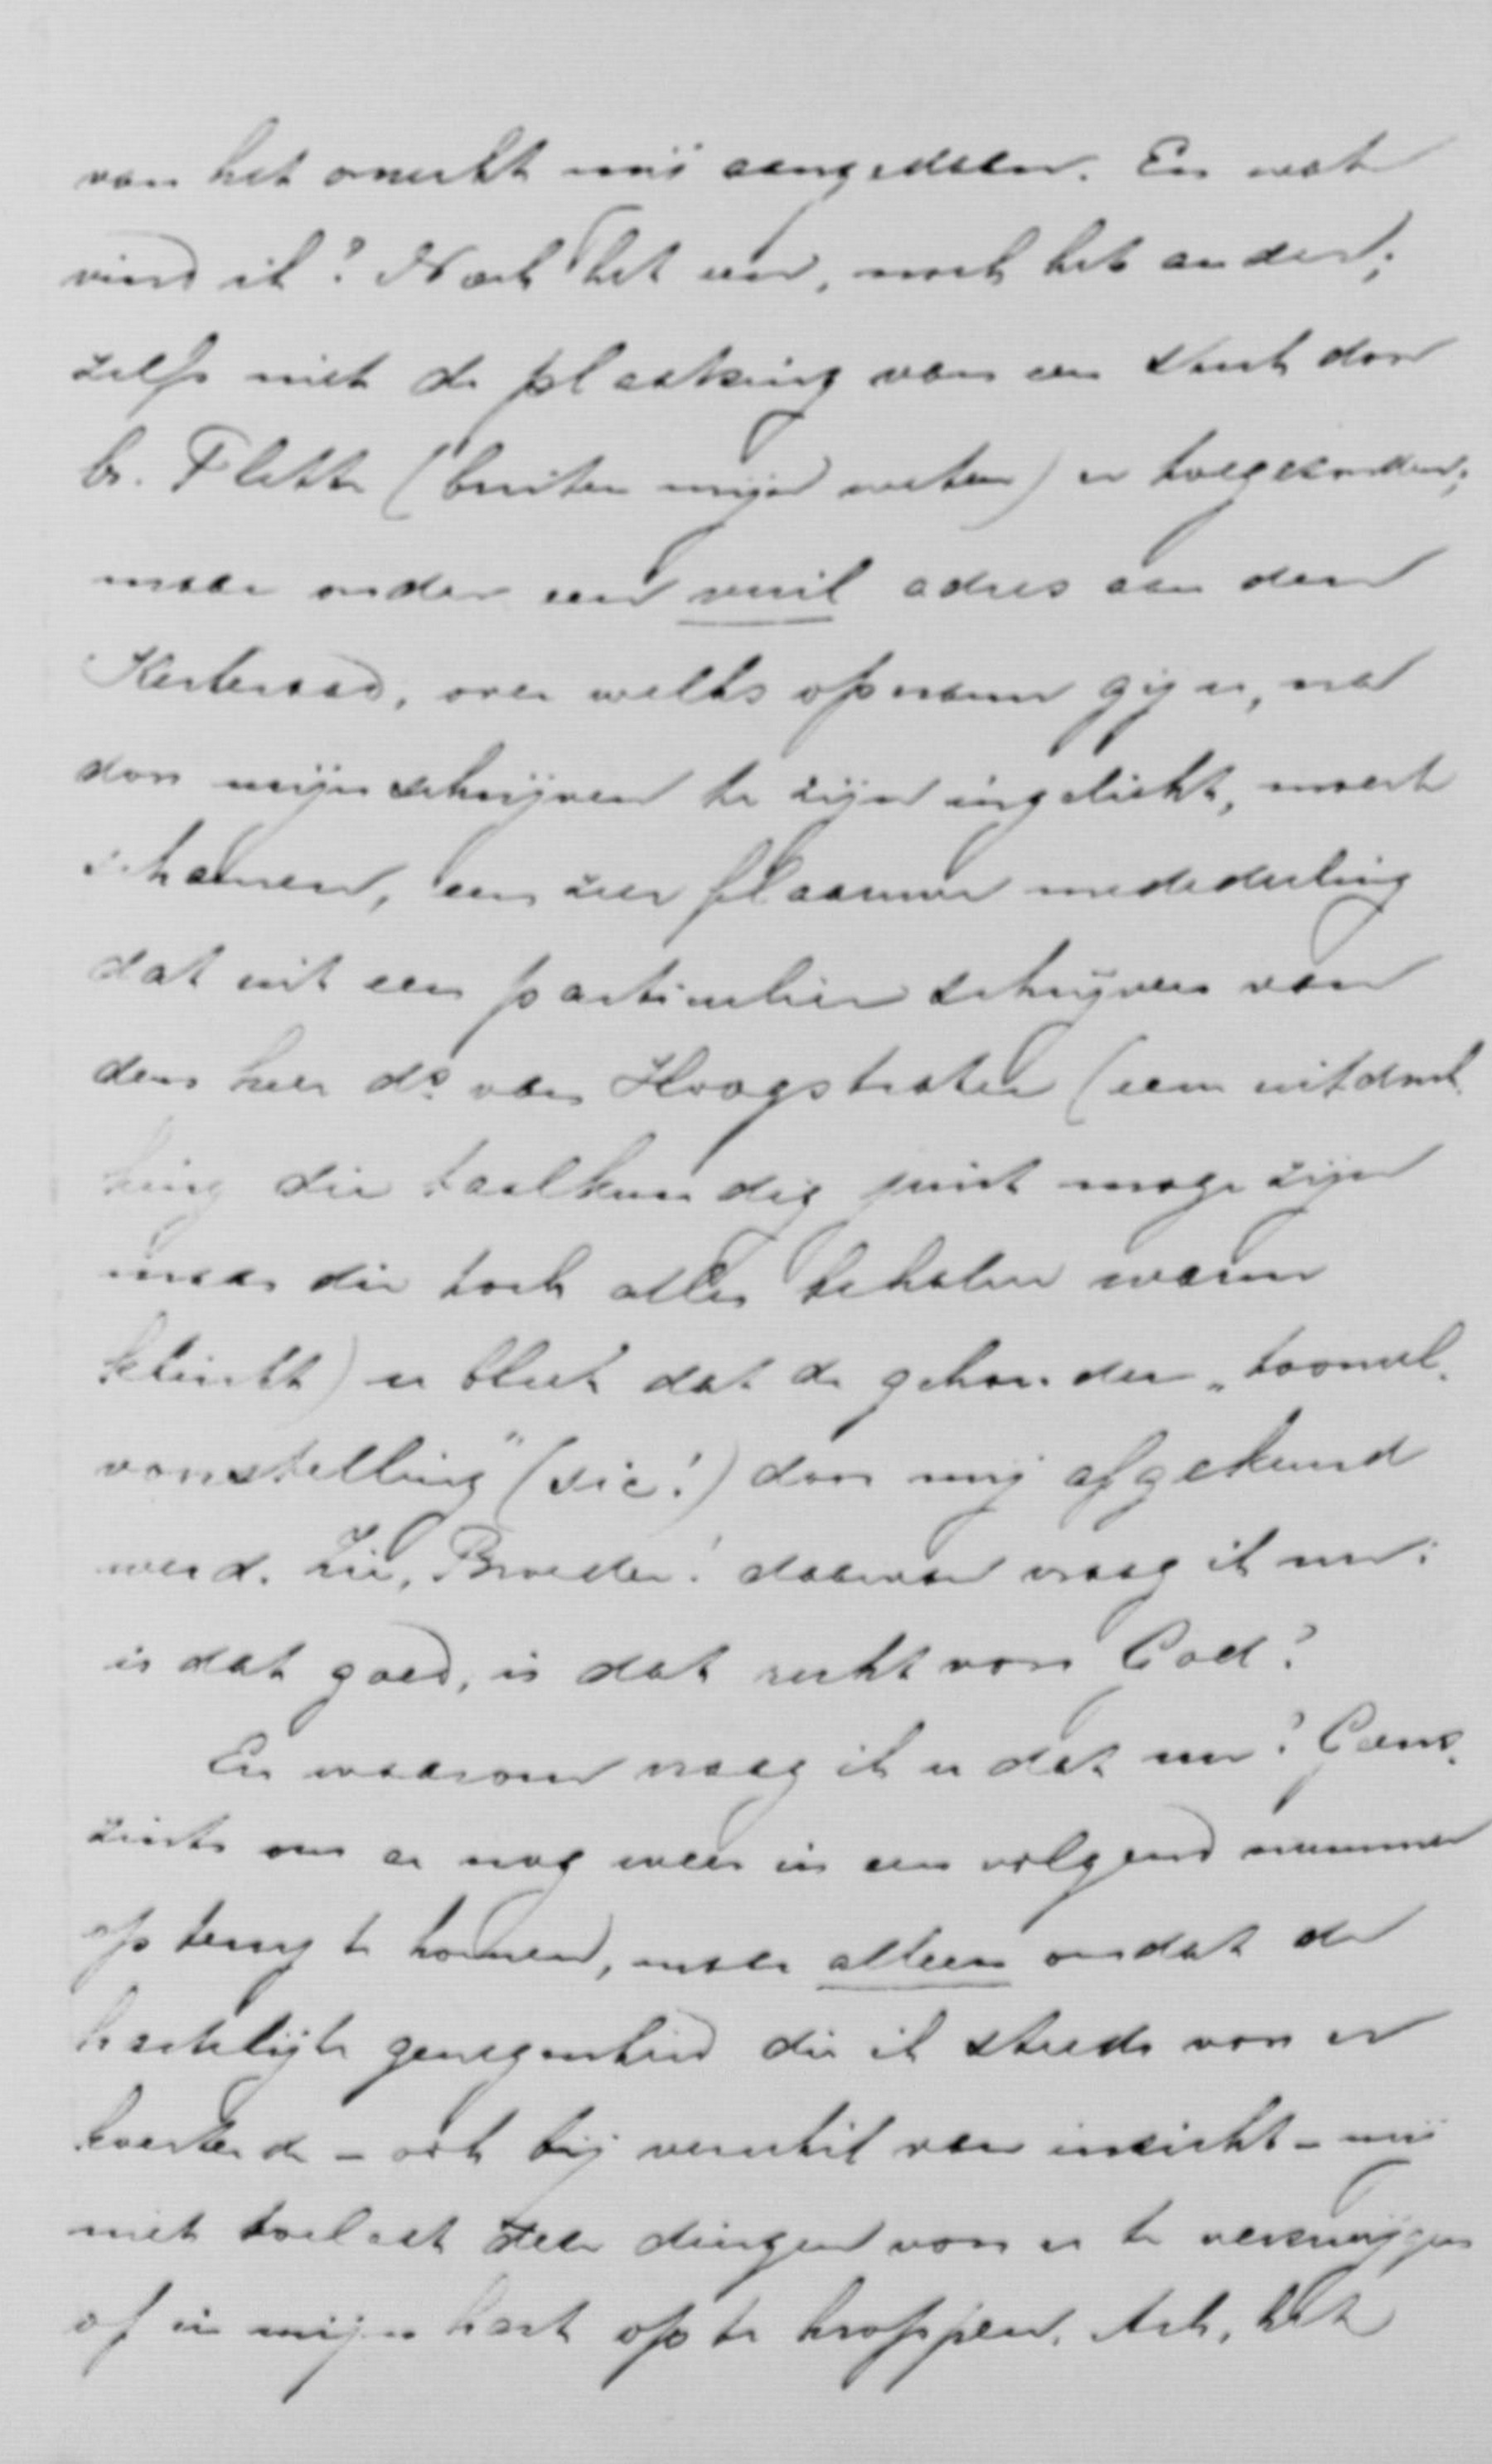 van het onrecht mij aangedaan. En wat
vind ik? Noch het een, noch het ander;
zelfs niet de plaatsing van een stuk door
br. Flette (buiten mijn weten) u toegezonden;
maar onder een vuil adres aan den
Kerkeraad, over welks opname gij u, na
door mijn schrijven te zijn ingelicht, moest
schamen, een zeer flaauwe mededeeling
dat uit een particulier schrijven van
den heer ds. van Hoogstraten (een uitdruk-
king die taalkundig juist moge zijn
maar die toch alles behalve warm
klinkt) u bleek dat de gehouden „tooneel-
voorstelling" (sic!) door mij afgekeurd
werd. Zie, Broeder! daarvan vraag ik nu:
is dat goed, is dat recht voor God?
En waarom vraag ik u dat nu? Geens-
zints om er nog weer in een volgend nummer
op terug te komen, maar alleen omdat de
hartelijke genegenheid die ik steeds voor u
koesterde - ook bij verschil van inzicht - mij
niet toelaat deze dingen voor u te verzwijgen
of in mijn hart op te kroppen. Ach, het